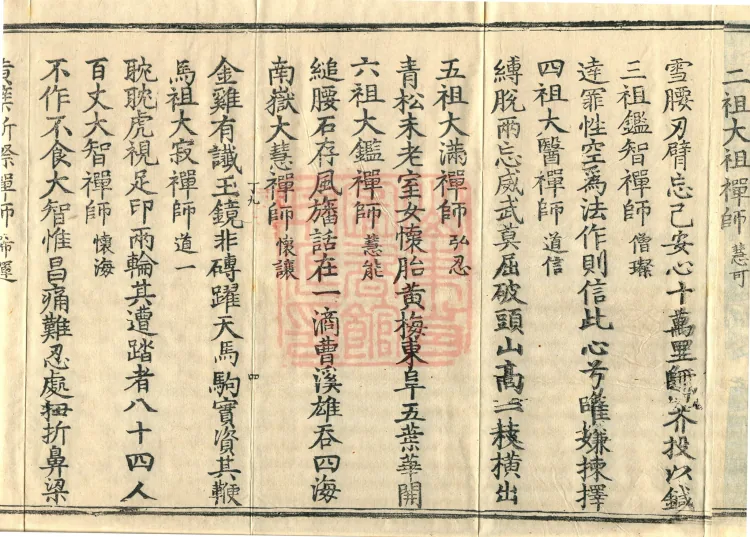 二祖大祖禪師 慧可
雪腰刃臂忘己安心十萬里師芥投以鍼
三祖鑑智禪師 僧璨
達罪性空爲法作則信此心兮唯嫌揀擇
四祖大醫禪師 道信
縛脫兩忘威武莫屈破頭山高一枝橫出
五祖大滿禪師 弘忍
青松未老室女懷胎黃梅東阜五葉華開
六祖大鑑禪師 慧能
縋腰石存風旛話在一滴曹溪雄吞四海
南嶽大慧禪師 懷讓
丁九
金雞有讖玉鏡非磚躍天馬駒實資其鞭
四
馬祖大寂禪師 道一
耽耽虎視足印兩輪其遭踏者八十四人
百丈大智禪師 懷海
不作不食大智惟昌痛難忍處扭折鼻梁
黃蘗斷際禪師 希運